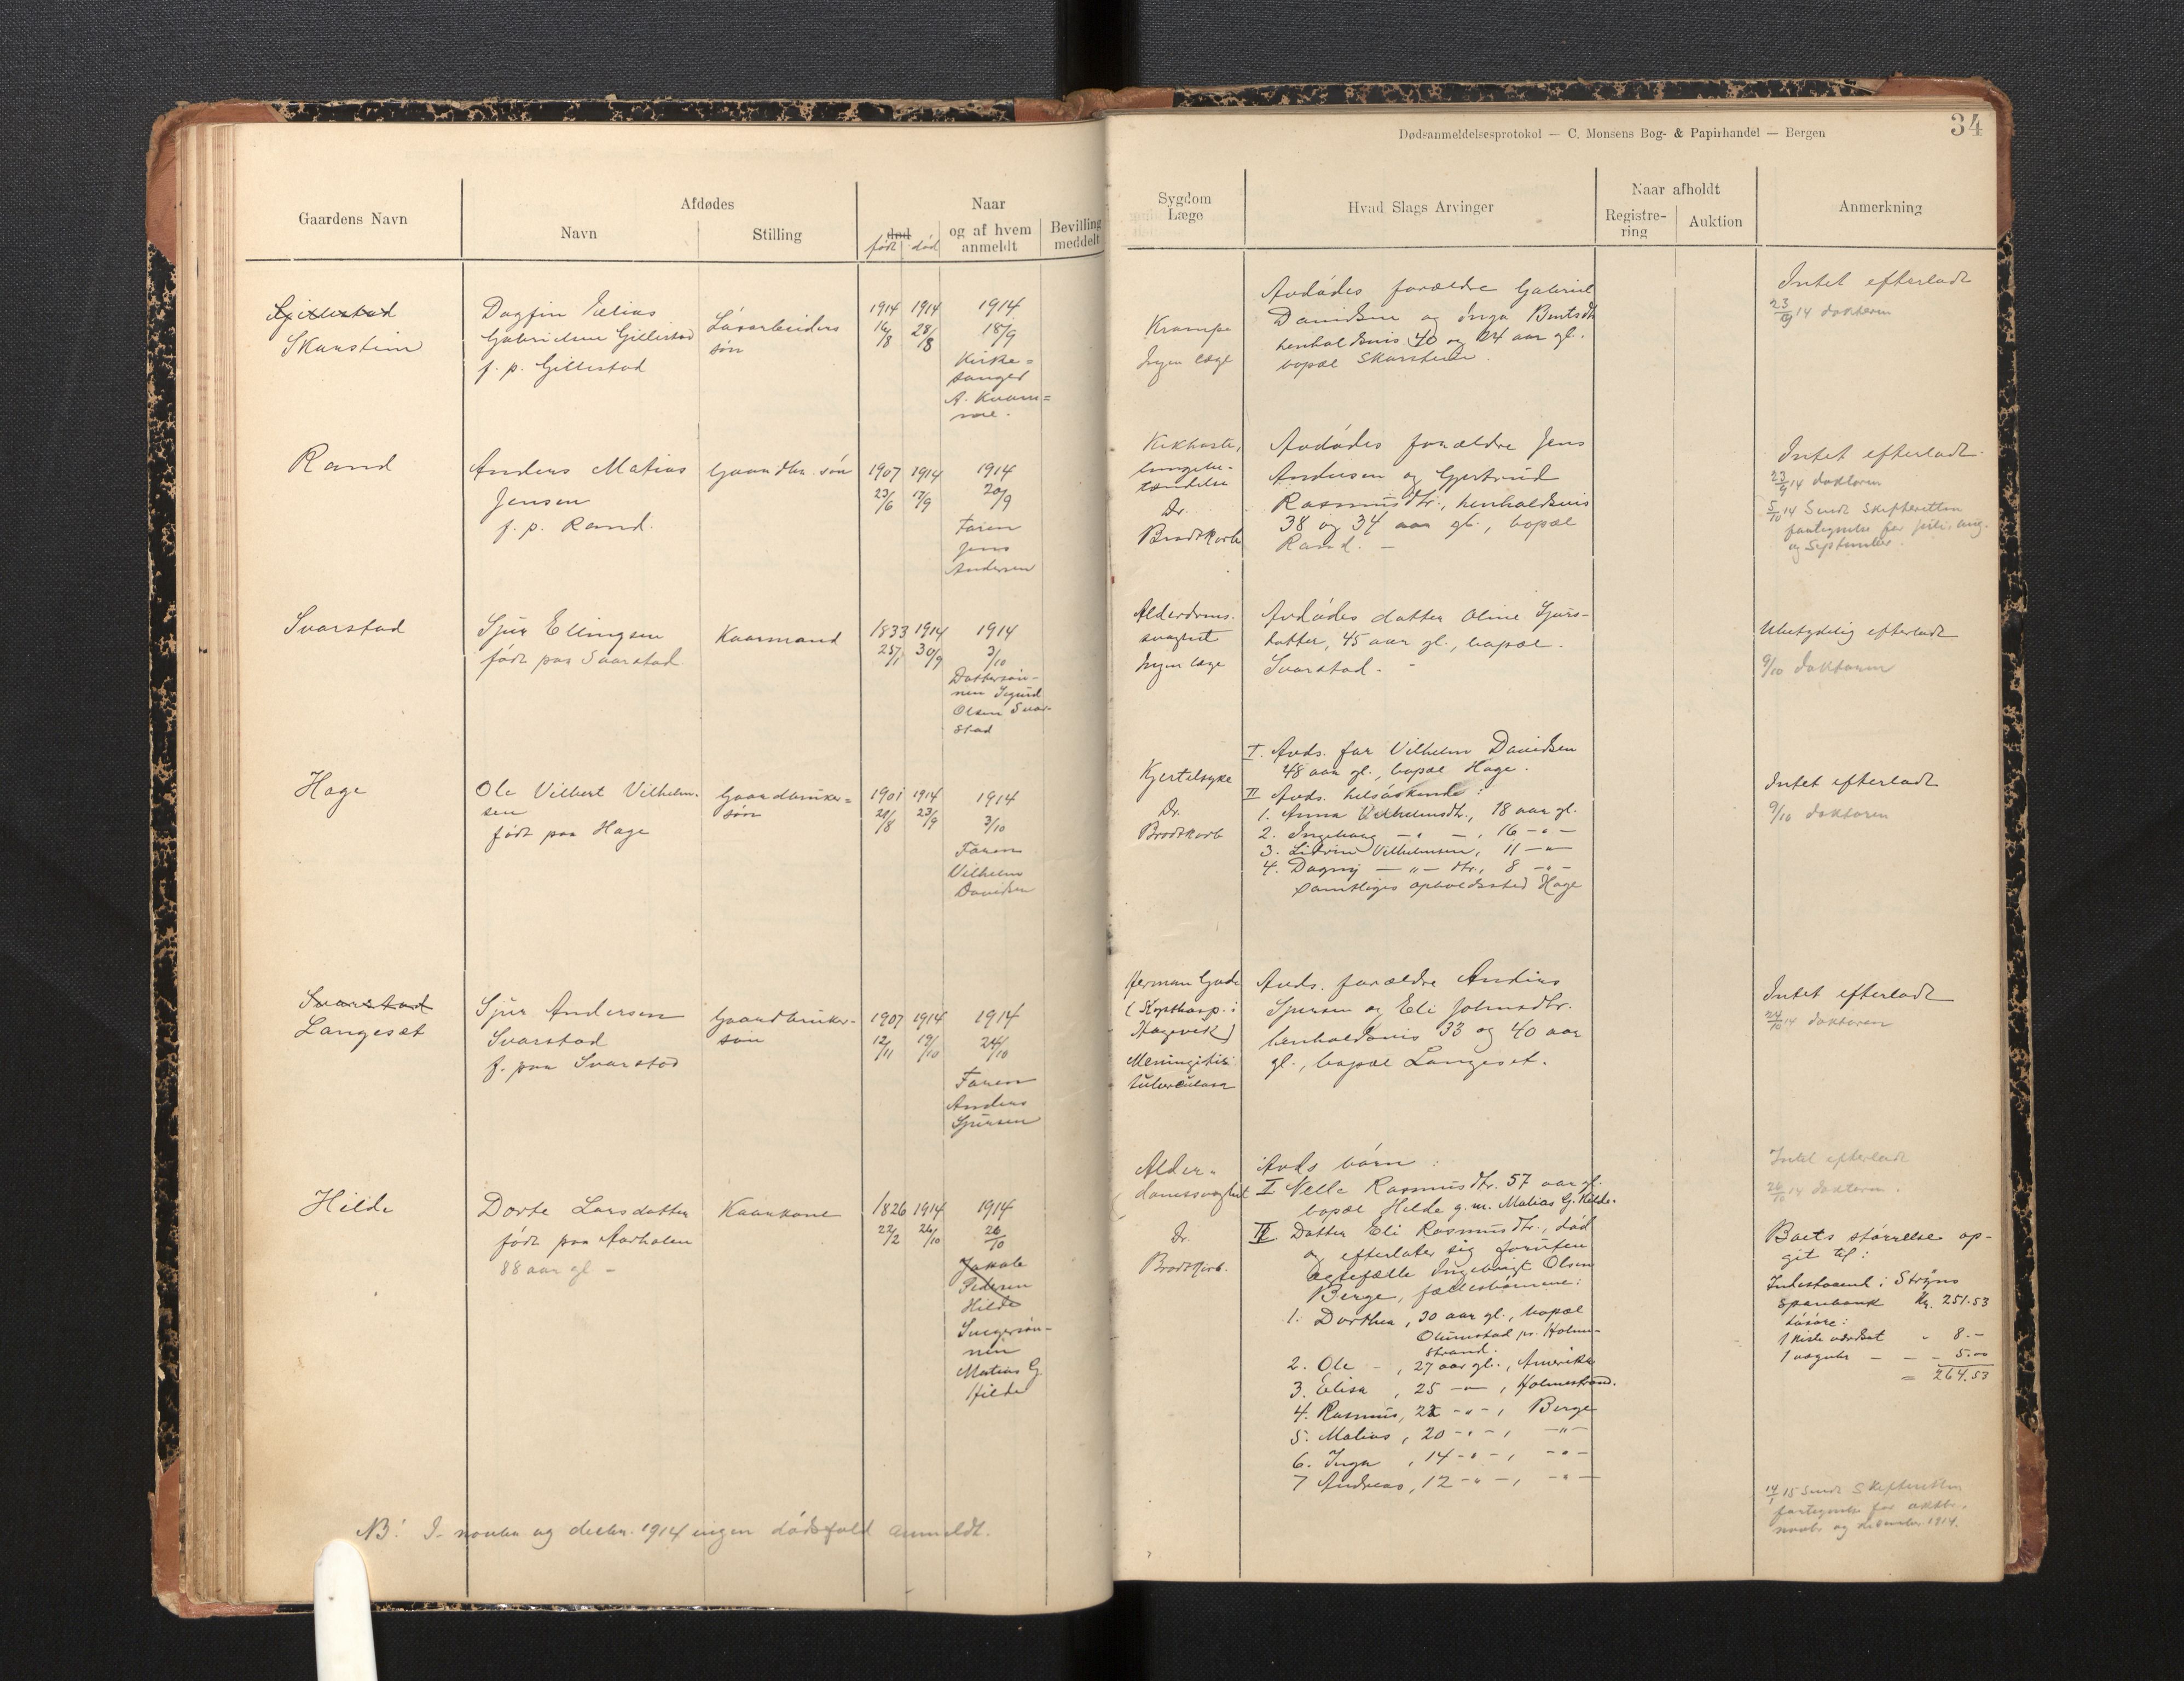 Dødsanmeldelsesprotokol — C. Monsens Bog- & Papirhandel — Bergen
34
Gaardens Navn
Afdødes
Navn
Stilling
Naar
død
født død
og af hvem
anmeldt
Bevilling
meddelt
Sygdom
Læge
Hvad Slags Arvinger
Naar afholdt
Registre-
ring
Auktion
Anmerkning
Gjillestad
Skarstein
Dagfin Elias
Gabrielsen Gillestad
f. p. Gillestad
Løsarbeiders
søn
1914 1914
16/8 28/8
1914
18/9
Kirke=
sanger
A. Kvam=
me.
Krampe
Ingen læge
Avdødes forældre Gabriel
Davidsen og Inga Bentsdt
henholdsvis 40 og 24 aar gl.
bopæl Skarstein.
Intet efterladt
23/9 14 doktoren
Rand
Anders Matias
Jensen
f. p. Rand.
Gaardbr. søn
1907 1914
23/6 17/9
1914
20/9
Faren
Jens
Andersen
Kikhoste,
lungebe-
tændelse
Dr.
Brodtkorb
Avdødes forældre Jens
Andersen og Gjertrud
Rasmusdtr., henholdsvis
38 og 34 aar gl., bopæl
Rand. —
Intet efterladt.
23/9 14 doktoren
5/10 14 Sendt Skifteretten
fortegnelse for juli, aug.
og September.
Svarstad
Sjur Ellingsen
født paa Svarstad
Kaarmand
1833 1914
25/1 30/9
1914
3/10
Dattersøn-
nen Sigurd
Olsen Svar-
stad
Alderdoms-
svaghet
Ingen læge
Avdødes datter Oline Sjurs-
datter, 45 aar gl., bopæl
Svarstad. -
Ubetydelig efterladt
9/10 doktoren
Hage
Ole Vilbert Vilhelm-
sen
født paa Hage
Gaardbruker=
søn
1901 1914
28/8 23/9
1914
3/10
Faren
Vilhelm
Davidsen
Kjertelsyke
Dr.
Brodtkorb
I. Avds. far Vilhelm Davidsen
48 aar gl., bopæl Hage.
II Avds. helsøskende:
1. Anna Vilhelmsdtr., 18 aar gl.
2. Ingeborg — " — , 16 - " —
3. Vilhelmsen, 11 — " —
4. Dagny — " — dtr., 8 - " -
samtliges opholdssted Hage
Intet efterladt
9/10 doktoren
Svarstad
Langeset
Sjur Andersen
Svarstad
f. paa Svarstad
Gaardbruker-
søn
1907 1914
12/11 19/10
1914
24/10
Faren
Anders
Sjursen
Herman Gade
(Kysthosp. i
Hagevik)
Meningitis
tuberculosa
Avds. forældre Anders
Sjursen og Eli Johnsdtr.
henholdsvis 33 og 40 aar
gl., bopæl Langeset.
Intet efterladt
24/10 14 doktoren
Hilde
Dorte Larsdatter
født paa Aarholen
88 aar gl —
Kaarkone
1826 1914
22/2 26/10
1914
26/10
Jakob
Pedersen
Hilde
Svigersøn-
nen
Matias G.
Hilde
Alder-
domssvaghet
Dr.
Brodtkorb.
Avds børn:
I Nelle Rasmusdtr. 57 aar gl.
bopæl Hilde g. m. Matias G. Hilde.
II. Datter Eli Rasmusdtr., død
og efterlater sig foruten
ægtefælle Ingebrigt Olsen
Berge, fællesbørnene:
1. Dorthea, 30 aar gl., bopæl
pr. Holme-
strand.
2. Ole - , 27 aar gl., Amerika
3. Elisa , 25 — " — , Holmestrand.
4. Rasmus, 22 - " - , Berge
5. Matias , 20 - " - , — " —
6. Inga , 14 - " - , - " -
7 Andreas, 12 - " - , - " -
Intet efterladt
26/10 14 doktoren.
Boets størrelse op-
git til:
Indestaaende i Stryns
Sparebank Kr. 251.53
Løsøre:
1 kiste værdsat " 8.—
1 væguhr — — - 5.00
= 264.53
14/1 15 Sendt Skifteretten
fortegnelse for oktbr.,
novbr. og december 1914.
NB! I novbr. og decbr. 1914 ingen dødsfald anmeldt.